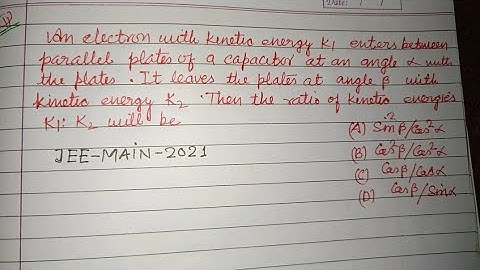 Date: / /
An electron with kinetic energy K1 enters between
parallel plates of a capacitor at an angle α with
the plates. It leaves the plates at angle β with
kinetic energy K2. Then the ratio of kinetic energies
K1: K2 will be
(A) Sin²β/Cos²α
JEE-MAIN-2021
(B) Cos²β/Cos²α
(C) Cosβ/Cosα
(D) Cosβ/Sinα